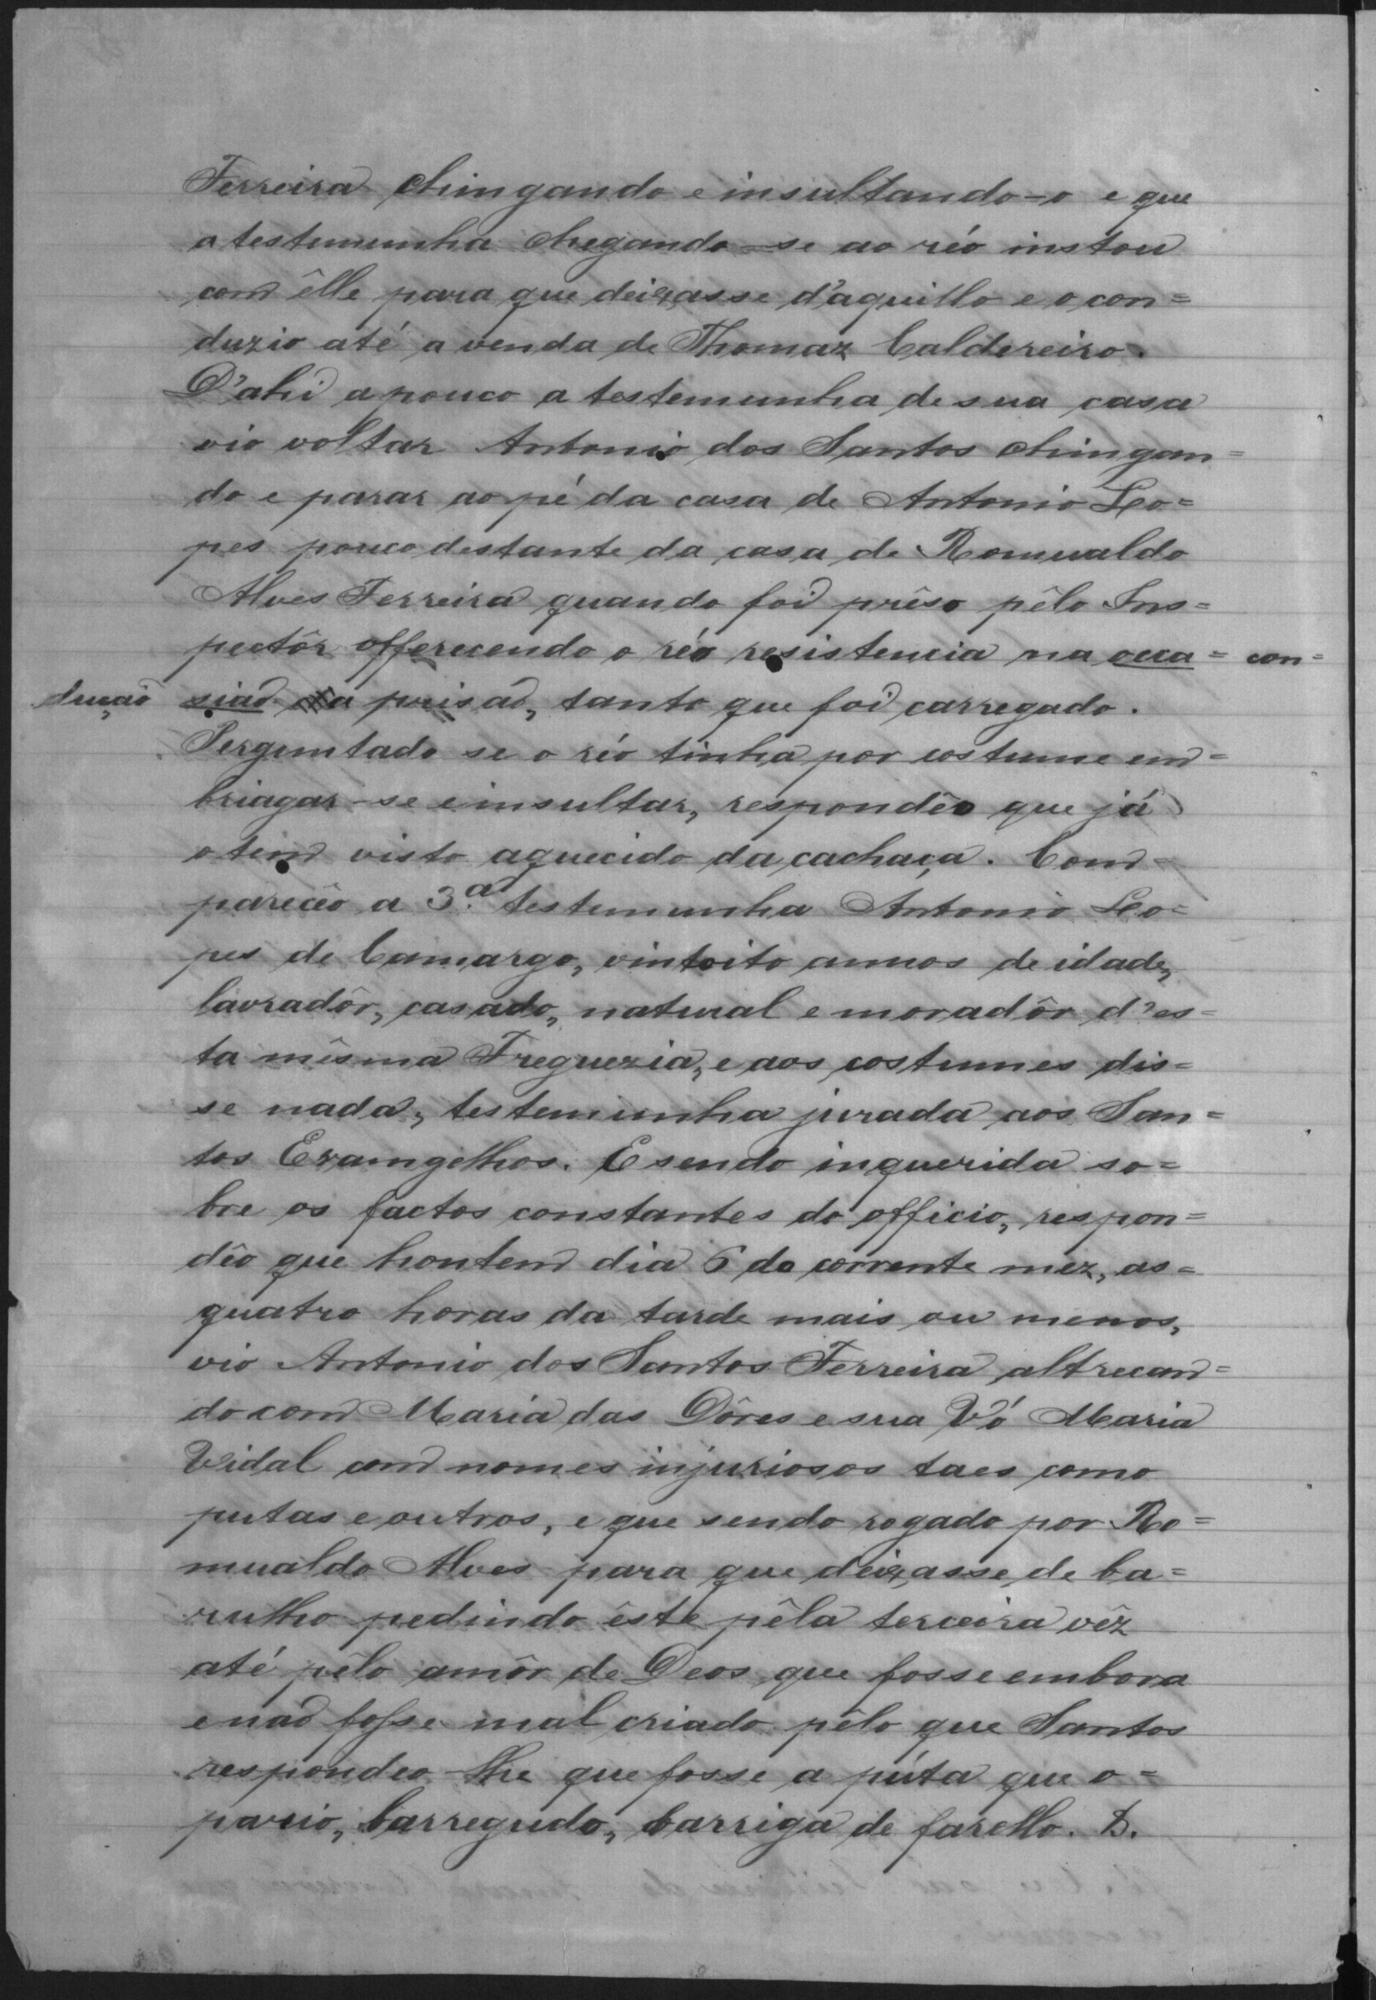 Ferreira chingando e insultando-o e que
a testemunha chegando-se ao réo instou
com êlle para que deixasse d'aquillo e o con=
duzio até a venda de Thomaz Caldereiro.
D'ahi a pouco a testemunha de sua casa
vio voltar Antonio dos Santos chingan=
do e parar ao pé da casa de Antonio Lo=
pes pouco destante da casa de Romualdo
Alves Ferreira quando foi prêso pêlo Ins=
pectôr offerecendo o réo resistencia na occa= con=
dução sião da prisão, tanto que foi carregado.
Perguntado se o réo tinha por costume em=
briagar-se e insultar, respondêo que já
o tem visto aquecido da cachaça. Com=
parecêo a 3.ª testemunha Antonio Lo=
pes de Camargo, vintoito annos de idade,
lavradôr, casado, natural e moradôr d'es=
ta mêsma Freguezia, e aos costumes dis=
se nada, testemunha jurada aos San=
tos Evamgelhos. E sendo inquerida so=
bre os factos constantes do officio, respon=
dêo que hontem dia 6 do corrente mez, as=
quatro horas da tarde mais ou menos,
vio Antonio dos Santos Ferreira altrecan=
do com Maria das Dôres e sua Vó Maria
Vidal com nomes injuriosos taes como
putas e outros, e que sendo rogado por Ro=
mualdo Alves para que deixasse de ba=
rulho pedindo êste pêla terceira vêz
até pêlo amôr de Deos que fosse embora
e não fosse mal criado pêlo que Santos
respondeo-lhe que fosse a púta que o=
pario, barregudo, barriga de farello. D.